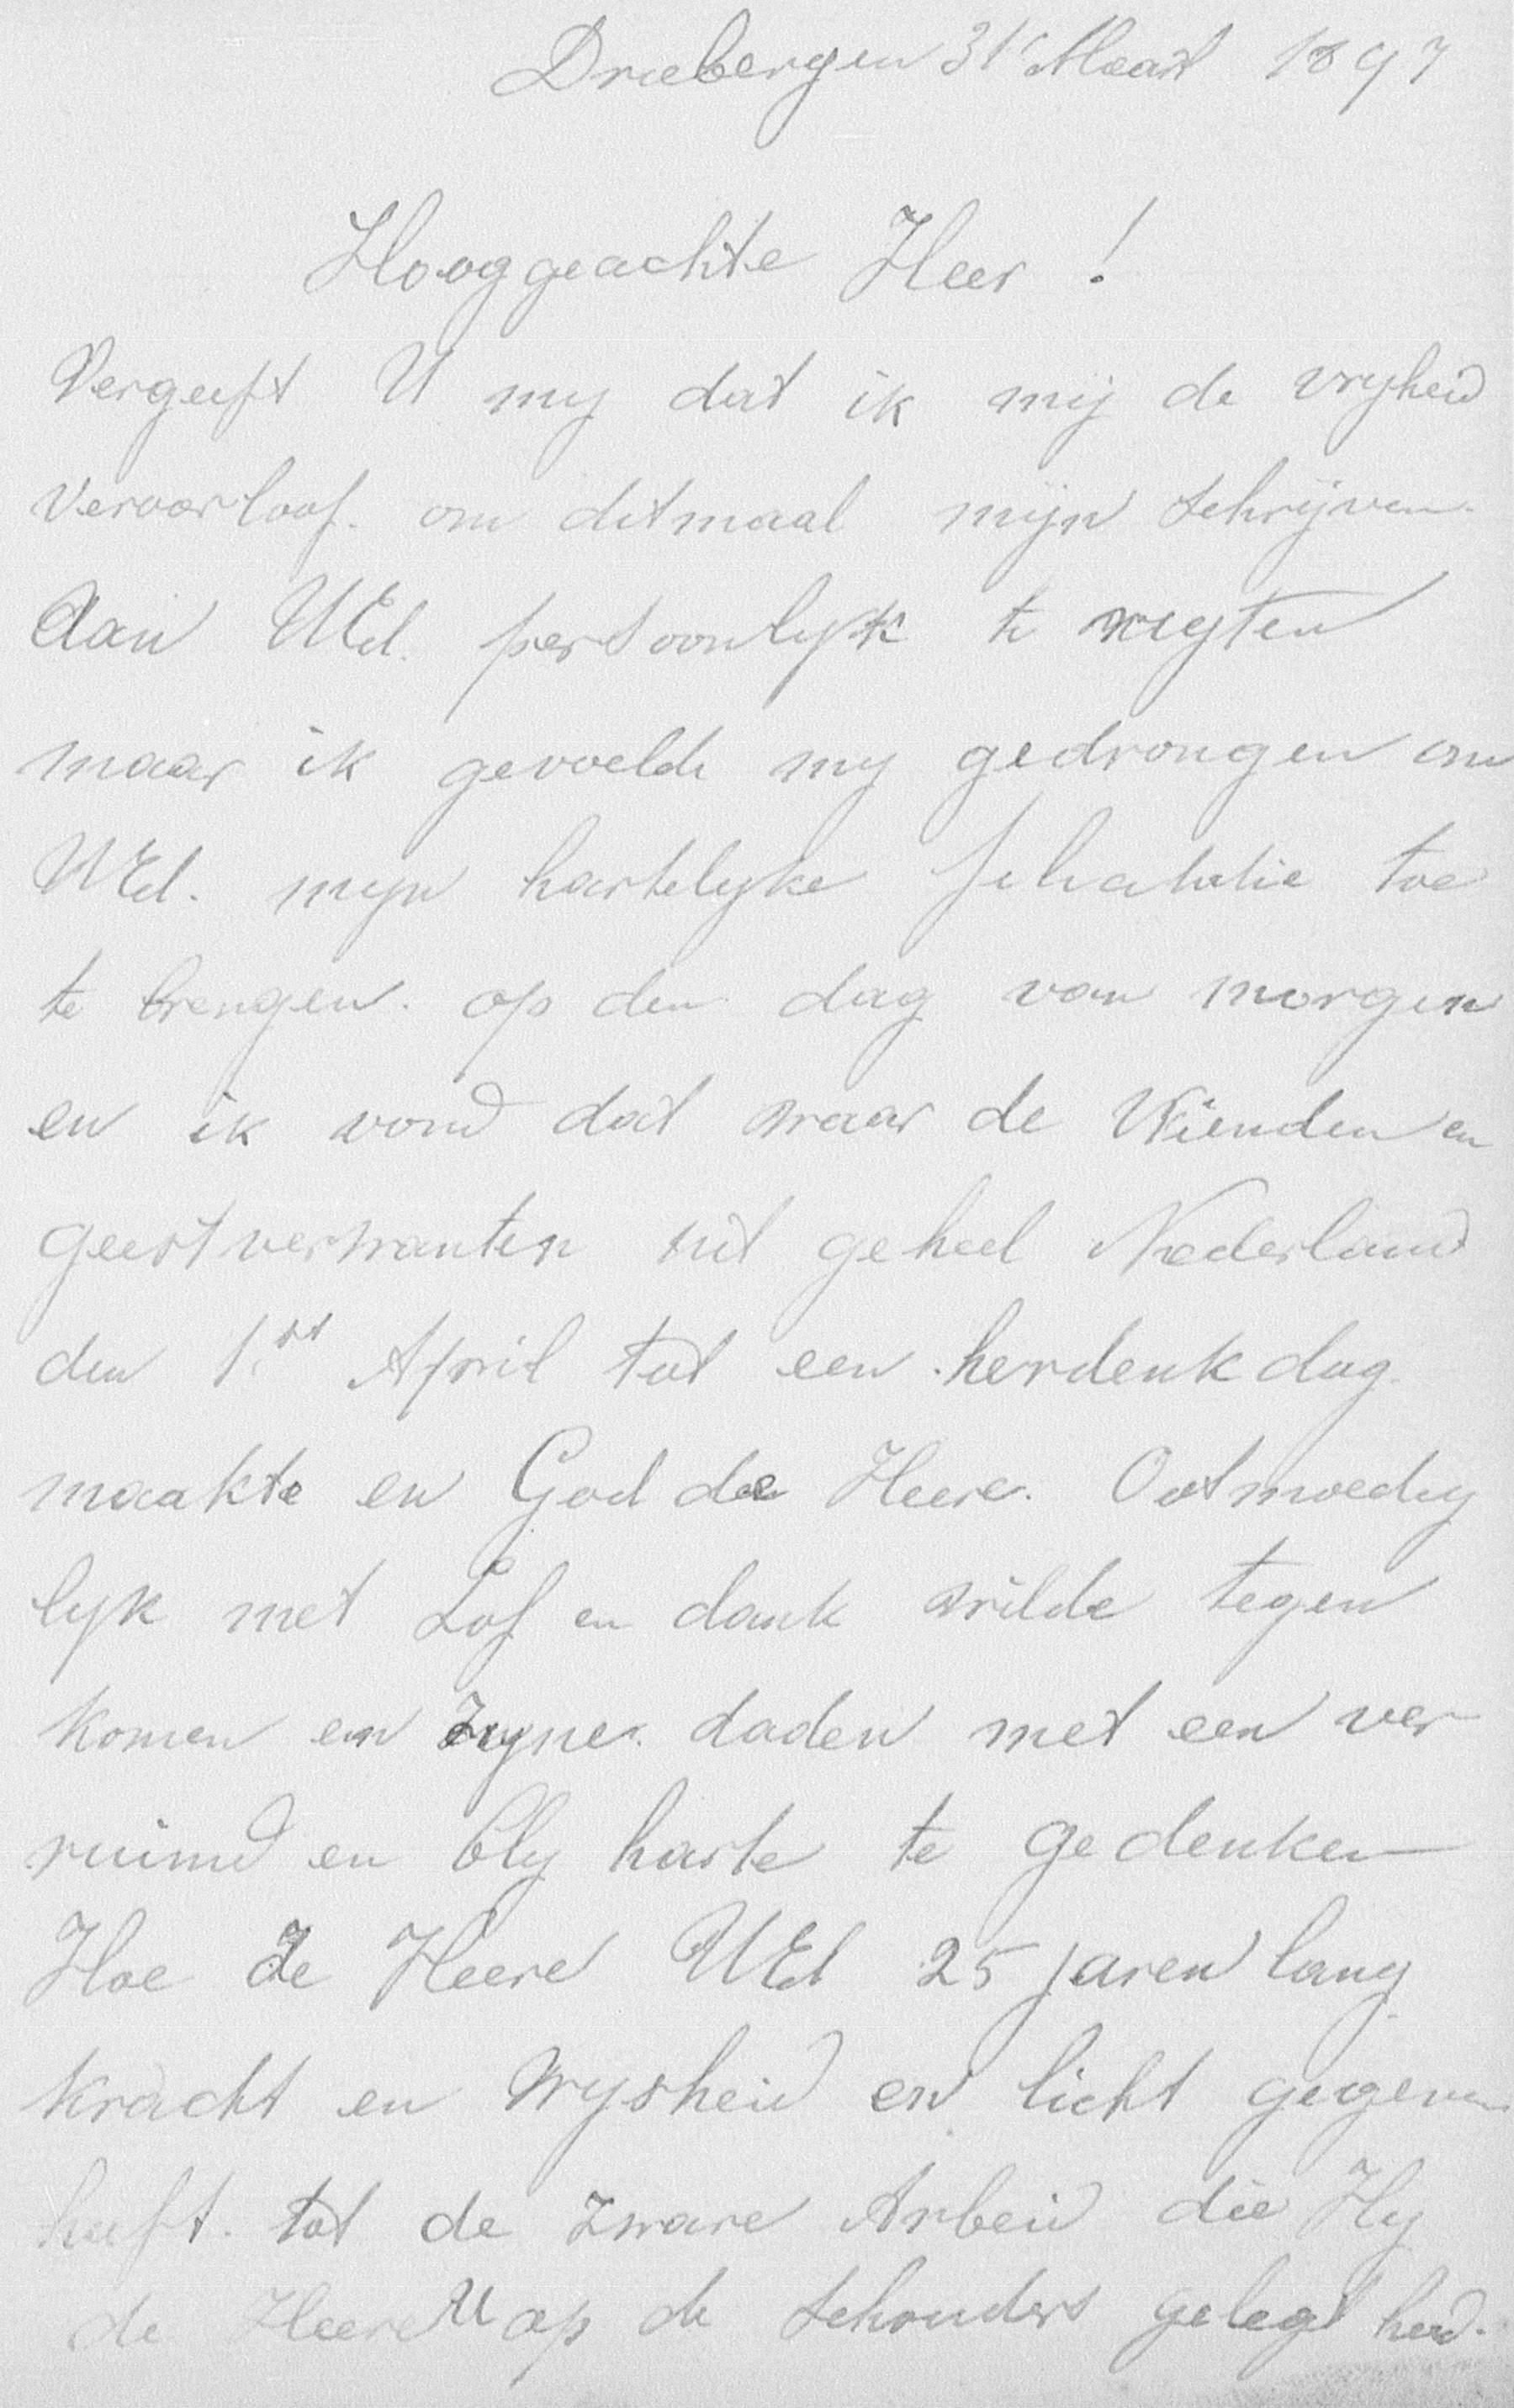 Driebergen 31 Maart 1897
Hooggeachte Heer !
Vergeeft U my dat ik mij de vryheid
veroorloof. om ditmaal mijn schrijven.
Aan UEd. persoonlyk te rigten
maar ik gevoelde my gedrongen om
UEd. myn hartelyke felicitatie toe
te brengen. op den dag van morgen
en ik vond dat waar de Vrienden en
geestverwanten uit geheel Nederland
den 1.st April tot een herdenkdag.
maakte en God de Heere. Ootmoedig
lyk met Lof en dank wilde tegen
komen en zyne. daden met een ver
ruimd en bly harte te gedenken
Hoe de Heere UEd 25 jaren lang
kracht en Wysheid en licht gegeven
heeft. tot de zware Arbeid die Hy
de Heere U op de schouders gelegt had.